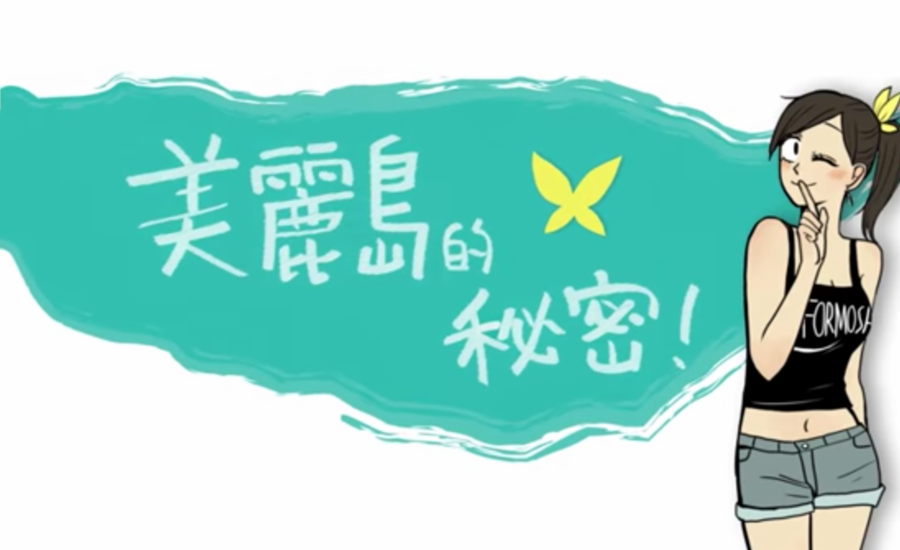 美麗島的
秘密!
FORMOSA